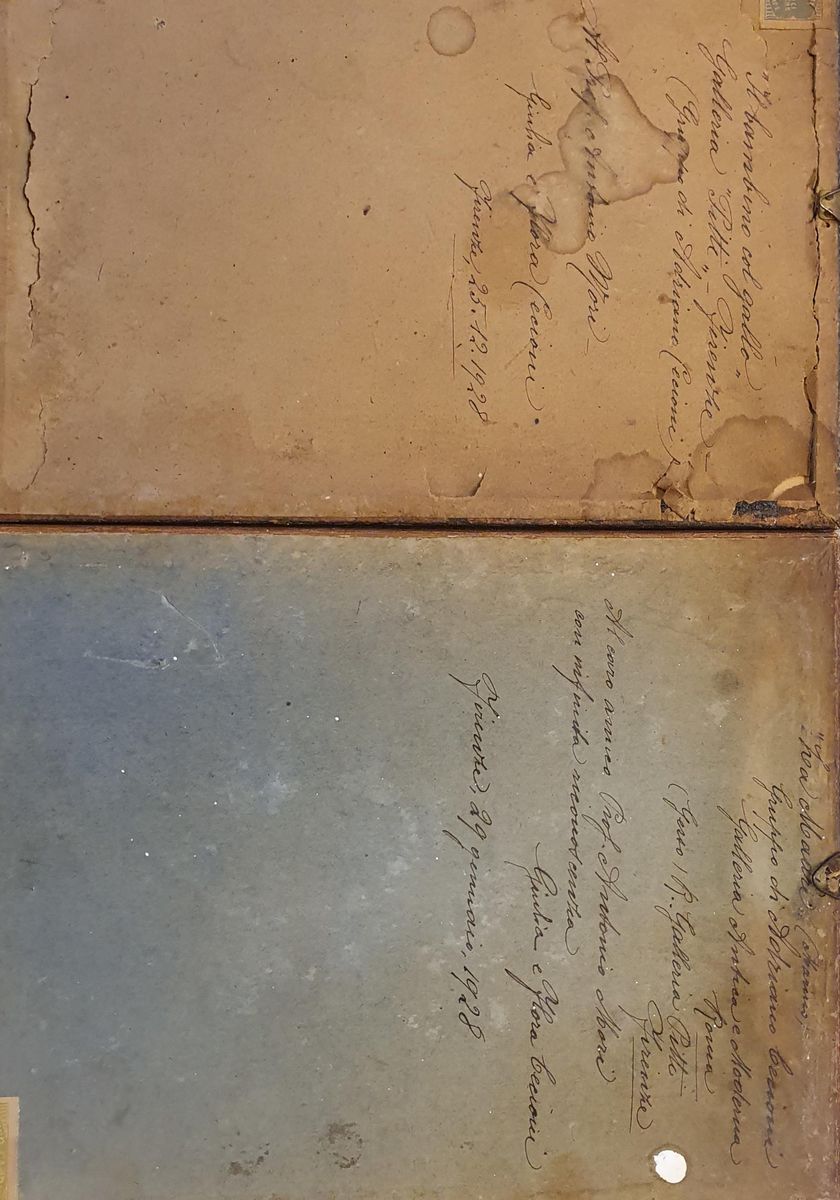 "Il bambino col gallo"
Galleria "Pitti" - Firenze -
(Gruppo di Adriano Cecioni)
Al Prof. Antonio Mori -
Giulia e Flora Cecioni.
Firenze, 25.12.1928
Madre (Marmo)
Gruppo di Adriano Cecioni
Galleria Antica e Moderna
Roma
(Gesso) R. Galleria Pitti
Firenze
Al caro amico Prof. Antonio Mori
con infinita riconoscenza
Giulia e Flora Cecioni
Firenze, 29 gennaio, 1928